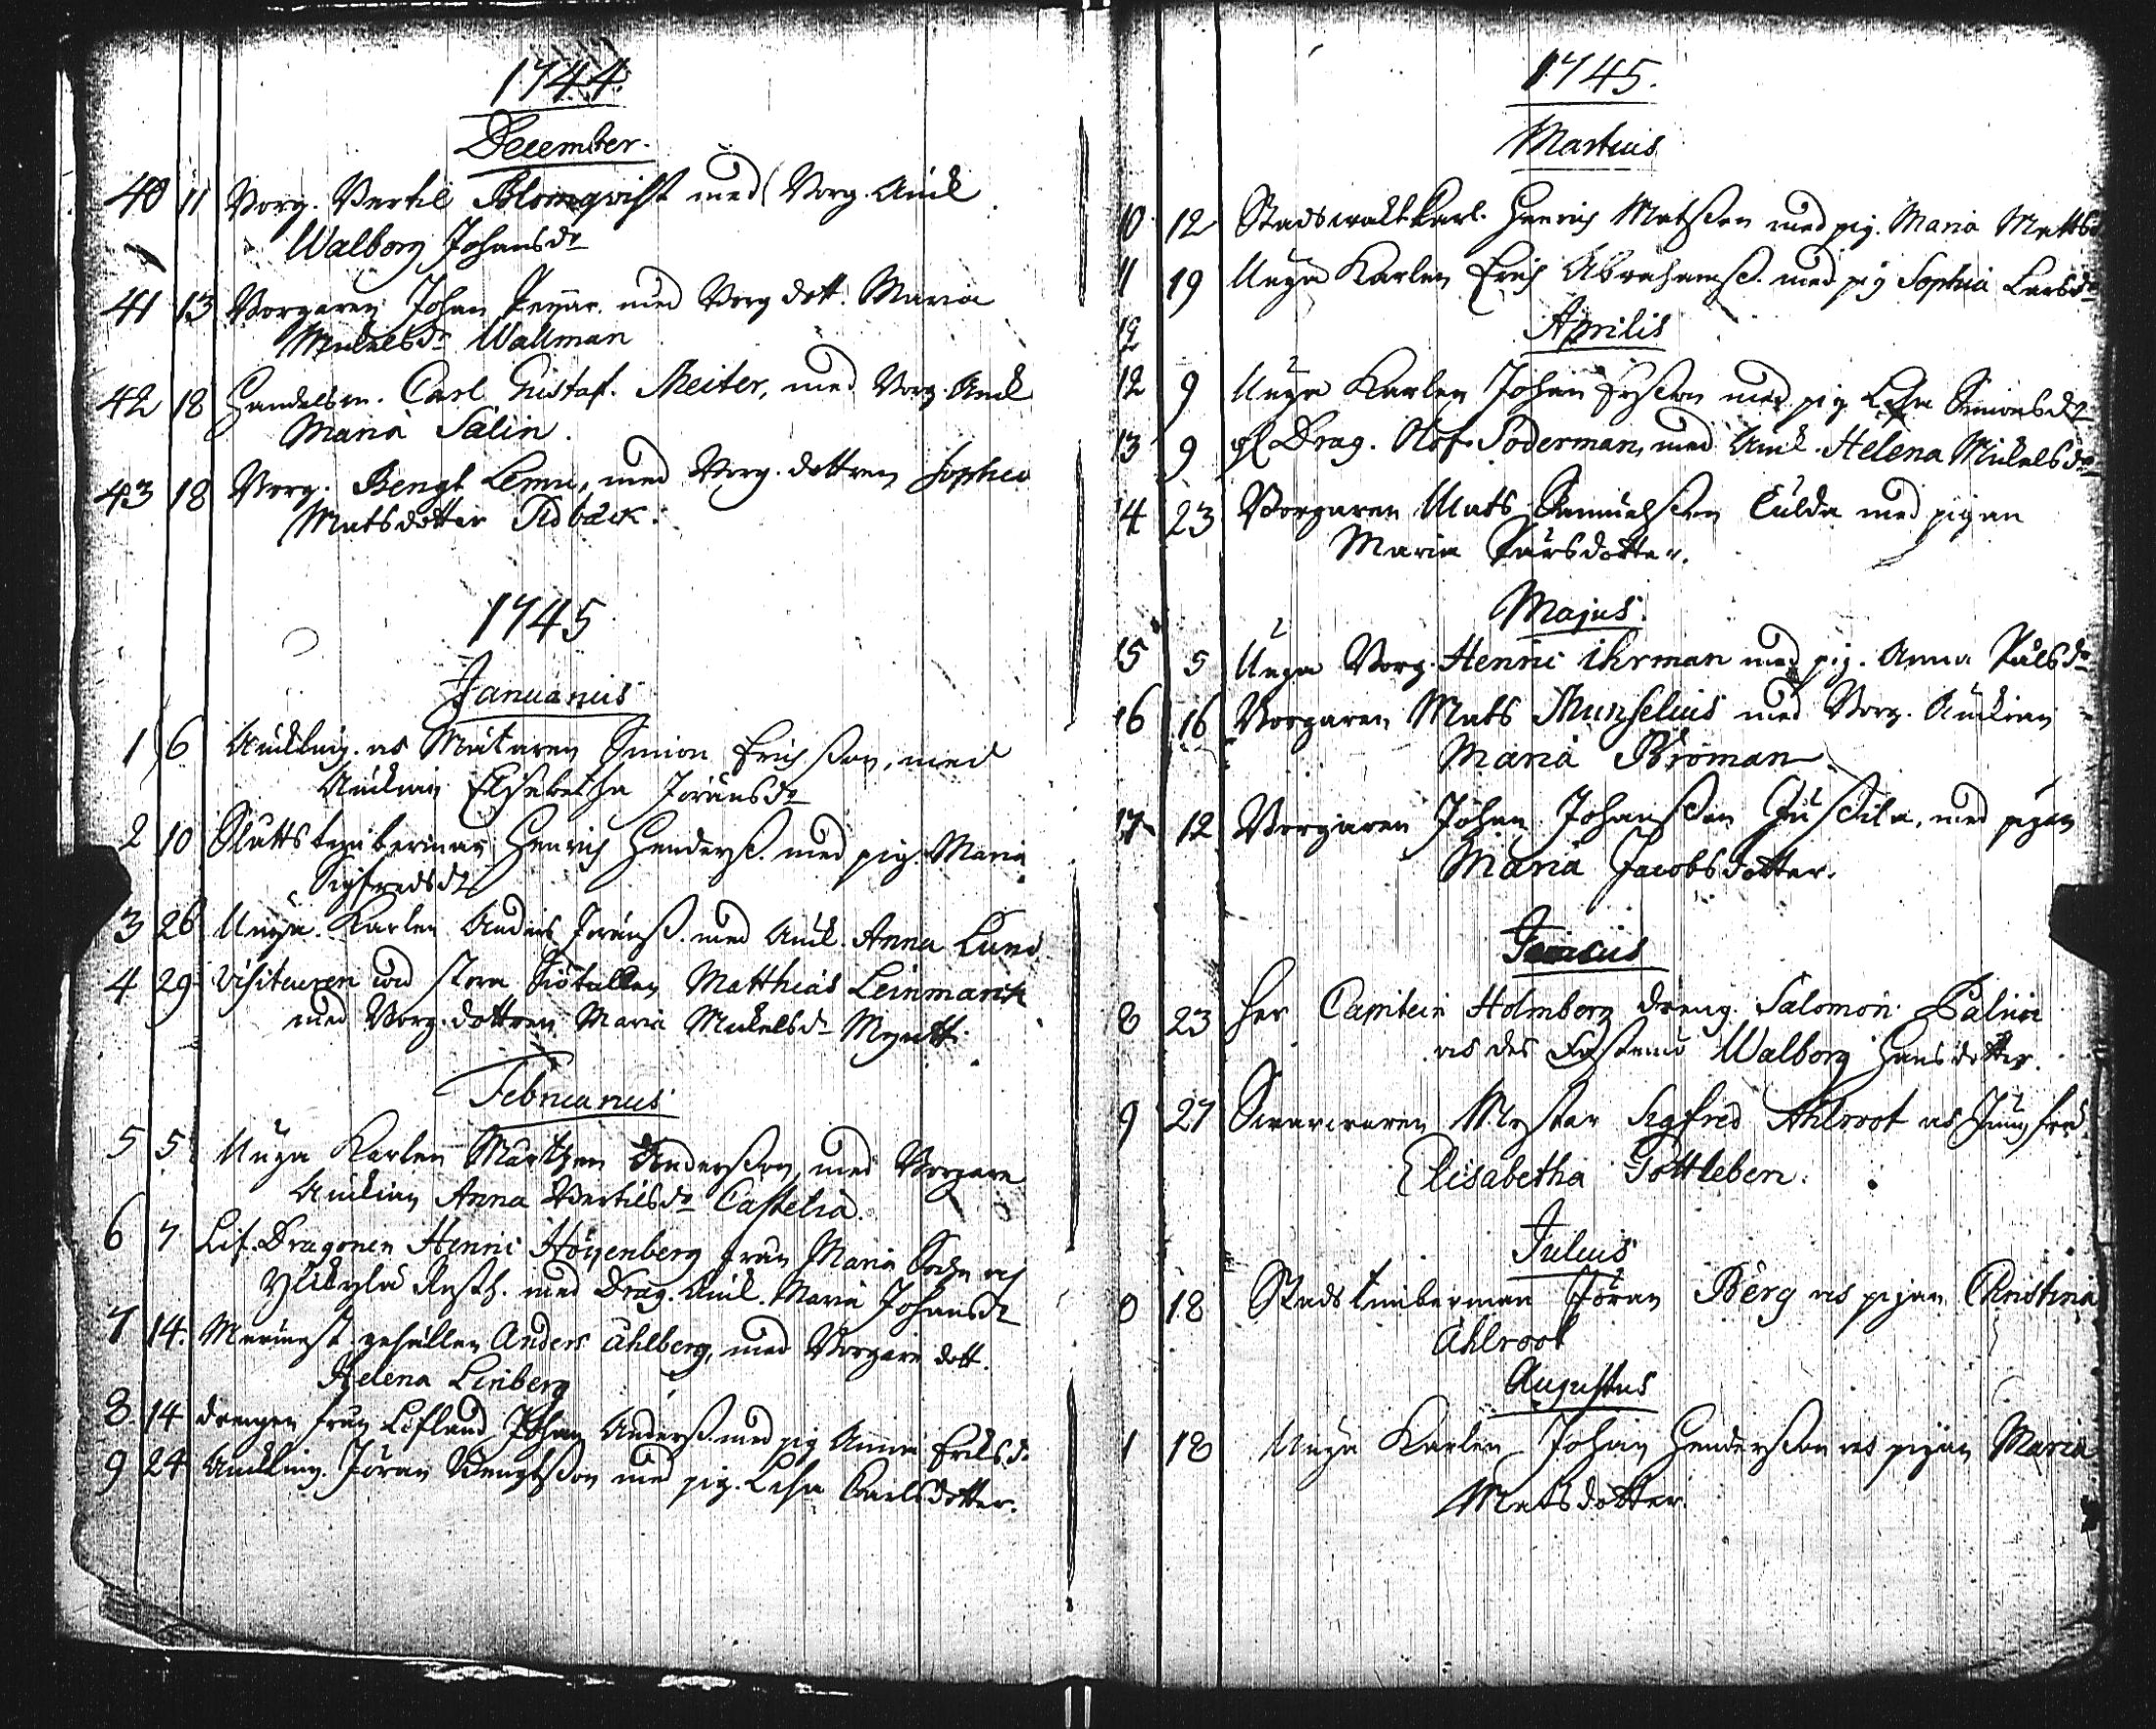 1744.
December.
40 11 Borg. Bertil Blomqvist med Borg. Änk
Walborg Johansdr
41 13 Borgaren Johan med Borg dott. Maria
Mickelsdr Wallman
42 18 Handelsm. Carl Gustaf. Meiter, med Borg. Änk
Maria Salin.
43 18 Borg. Bengt med Borg. dottren Sophia
Matsdotter Tidbäck.
1745
Januarius
1 6 Änkling. as Muraren Simon Erichsson, med
Änkian Elisabetha Jöransdr
2 10 Slotts timberman Henrich Hendersß. med pig. Maria
Sigfredsdr
3 26 Unga. Karlen Anders Jöransß. med Änk. Anna Lund
4 29 Visiteuren wid stora Siötullen Matthias Leinmarck
med Borg. dottren Maria Mickelsdr
Februarius
5 5 Unga Karlen Mårthen Andersson, med Borgare
Änkian Anna Bertilsdr Castelia.
6 7 Lif. Dragonen Henric Höijenberg från Maria Sokn och
med Drag. Änk. Maria Johansdr
7 14. gesällen Anders Ahlberg, med Borgare dott.
Helena Linberg
8 14 drengen från Lifland Johan Andersß med pig Anna Ericsd.
9 24 Änkling. Jöran Bengtsson med pig. Lisa Carlsdotter.
1745.
Martius
10 12 Stadswakt Karl. Henrich Matsson med pig. Maria Mattsd
11 19 Unga Karlen Erich Abrahamsß. med pig Sophia Larsdr
12
Aprilis
12 9 Unga Karlen Johan med pig Lisa Simonsdr
13 9 Drag. Olof Söderman, med Änk. Helena Mickelsdr
14 23 Borgaren Mats Samuelsson Culda med pigan
Maria Larsdotter.
Majus.
15 5 Unga Borg. Henric Ihrman med pig. Anna Pålsdr
16 16 Borgaren Mats Munselius med Borg. Änkian
Maria Broman
17 12 Borgaren Johan Johansson med pigan
Maria Jacobsdotter.
Junius
8 23 Her Capitein Holmberg dreng. Salomon
as des Walborg Hansdotter.
9 27 Swarwaren Mester Sigfred Ahlroot as Jungfru
Elisabetha Gottleben.
Julius
0 18 Stads timberman Jöran Berg as pigan Christina
Ahlroot
Augustus
1 18 Unga Karlen Johan Hendersson as pigan Maria
Matsdotter.